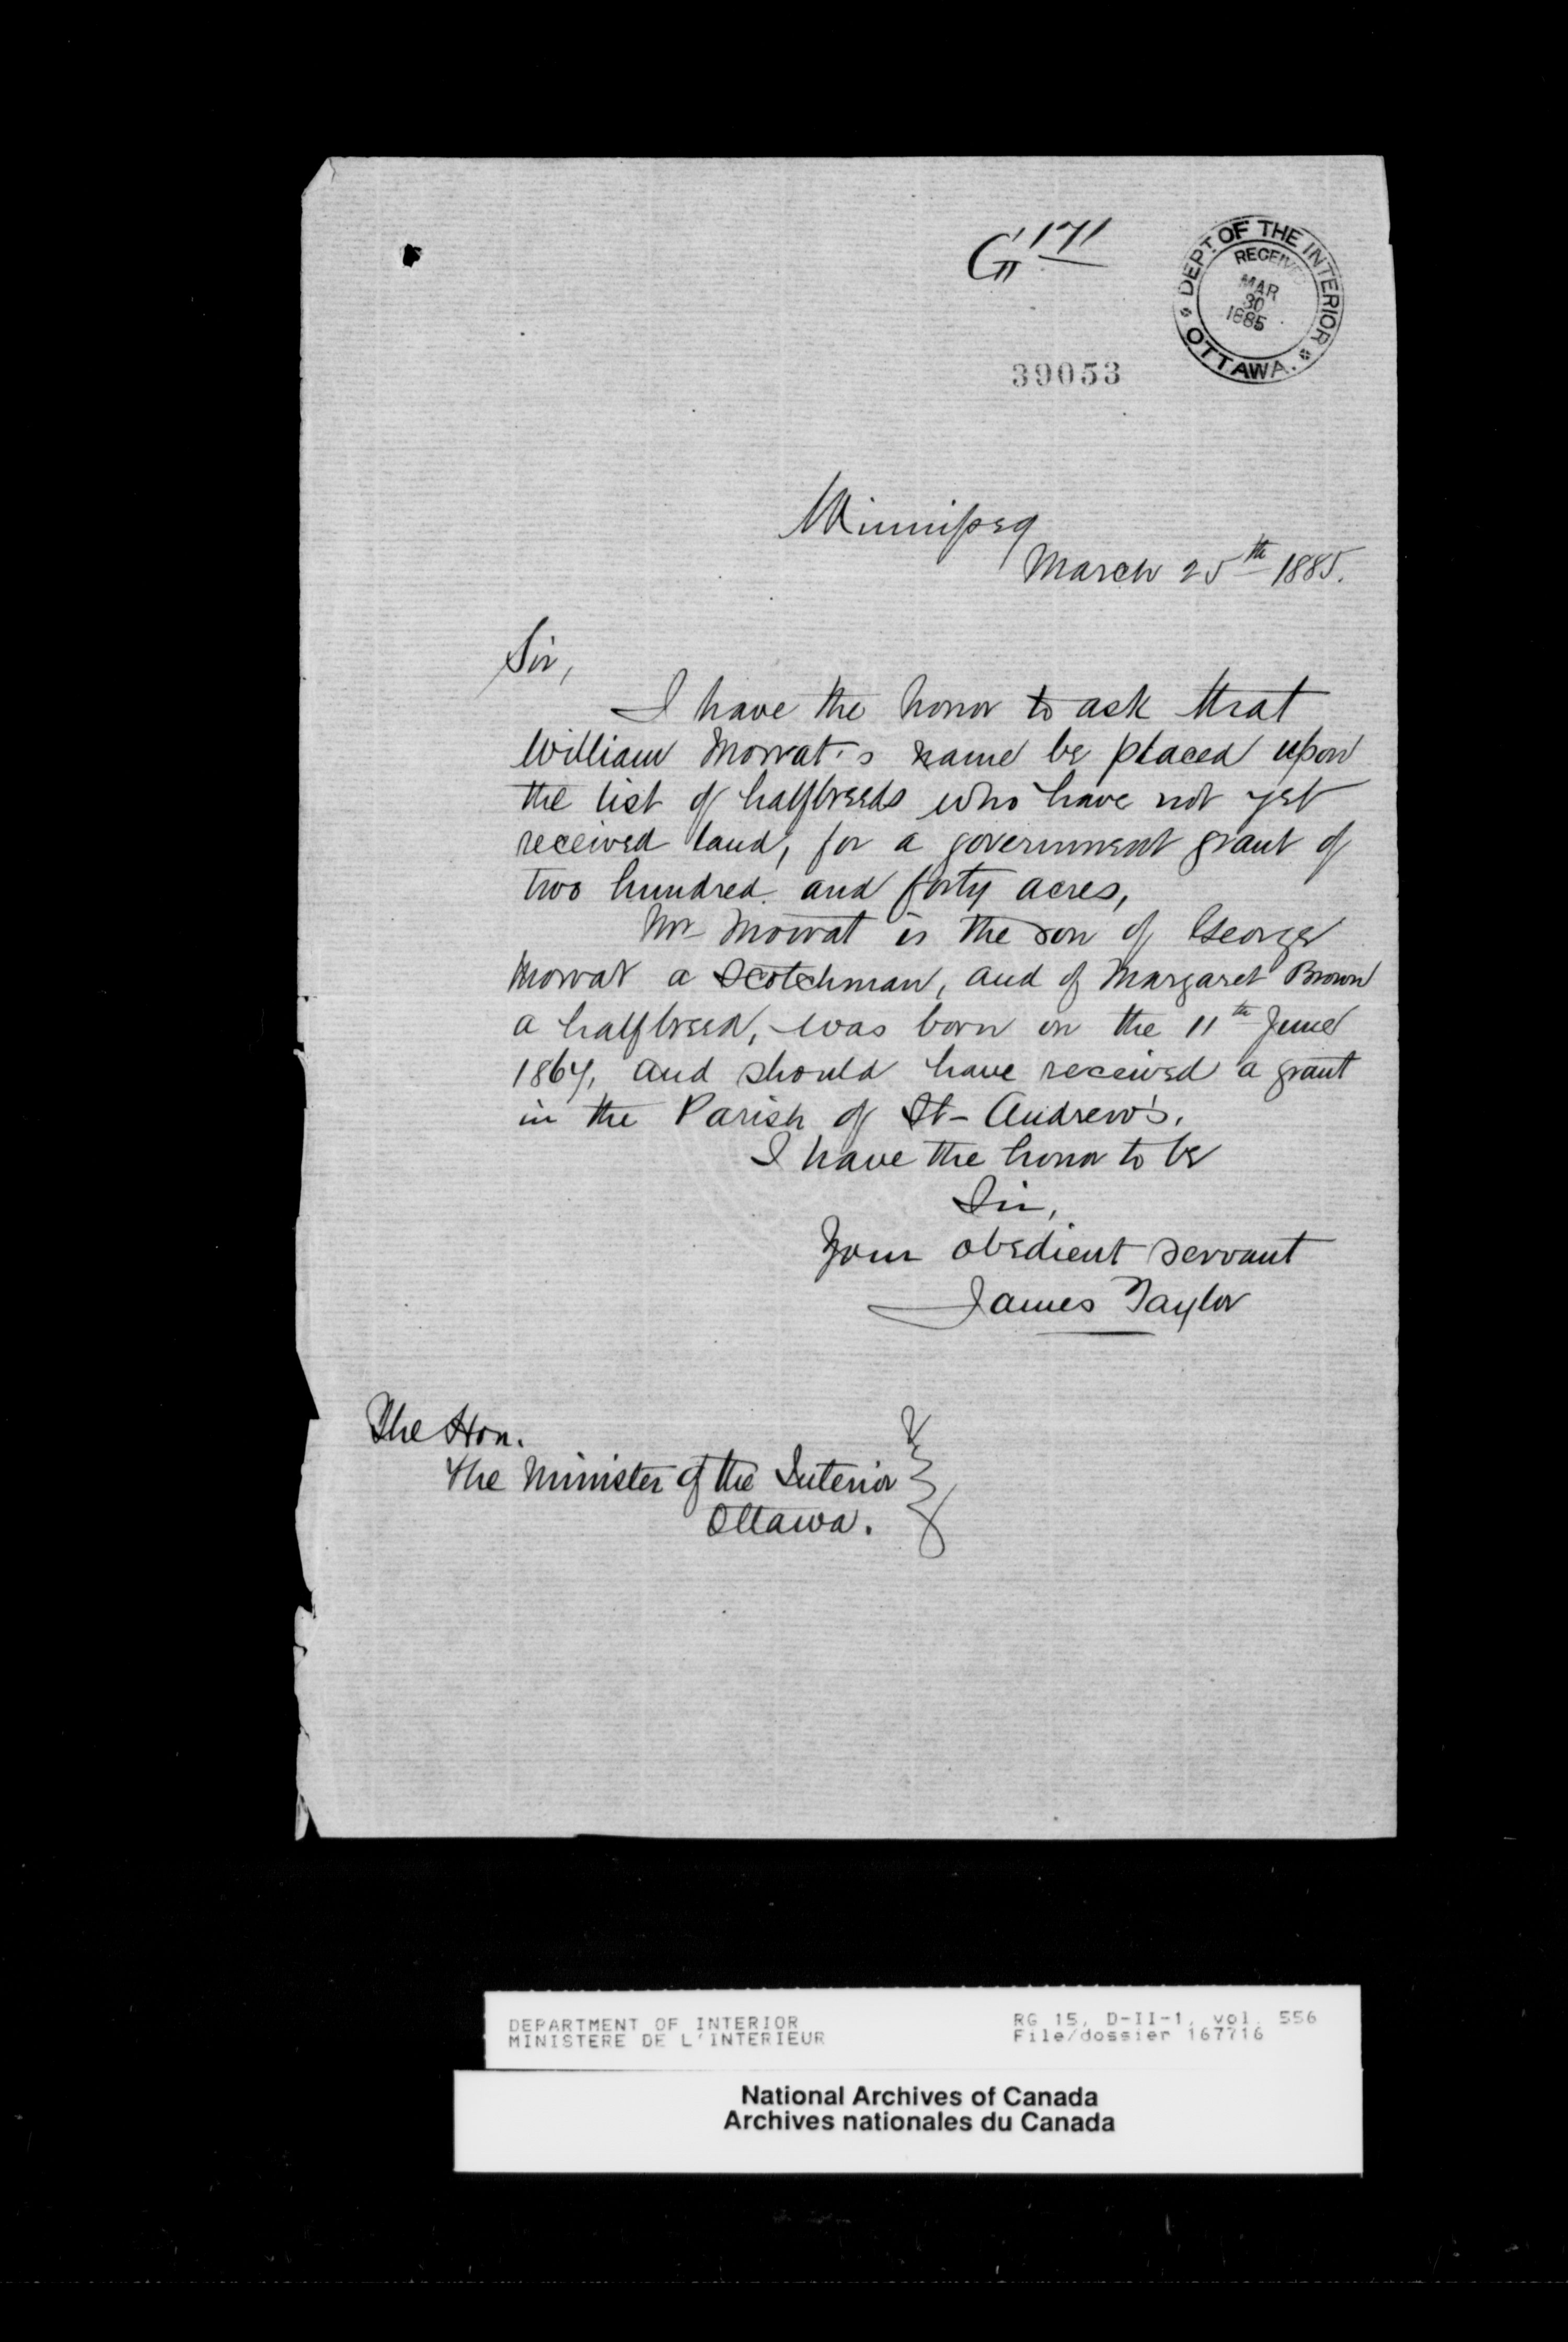 G 171
DEPT. OF THE INTERIOR
RECEIVED
MAR
30
1885
OTTAWA.
39053
Winnipeg
March 25th 1885.
Sir,
I have the honor to ask that
William Mowat's name be placed upon
the list of halfbreeds who have not yet
received land, for a government grant of
two hundred and forty acres,
Mr Mowat is the son of George
Mowat a Scotchman, and of Margaret Brown
a halfbreed, was born on the 11th June
and should have received a grant
in the Parish of St- Andrew's.
I have the honor to be
Sir,
Your obedient servant
James Taylor
The Hon.
The Minister of the Interior
Ottawa.
DEPARTMENT OF INTERIOR
MINISTERE DE L'INTERIEUR
RG 15, D-II-1, vol. 556
File/dossier 167716
National Archives of Canada
Archives nationales du Canada